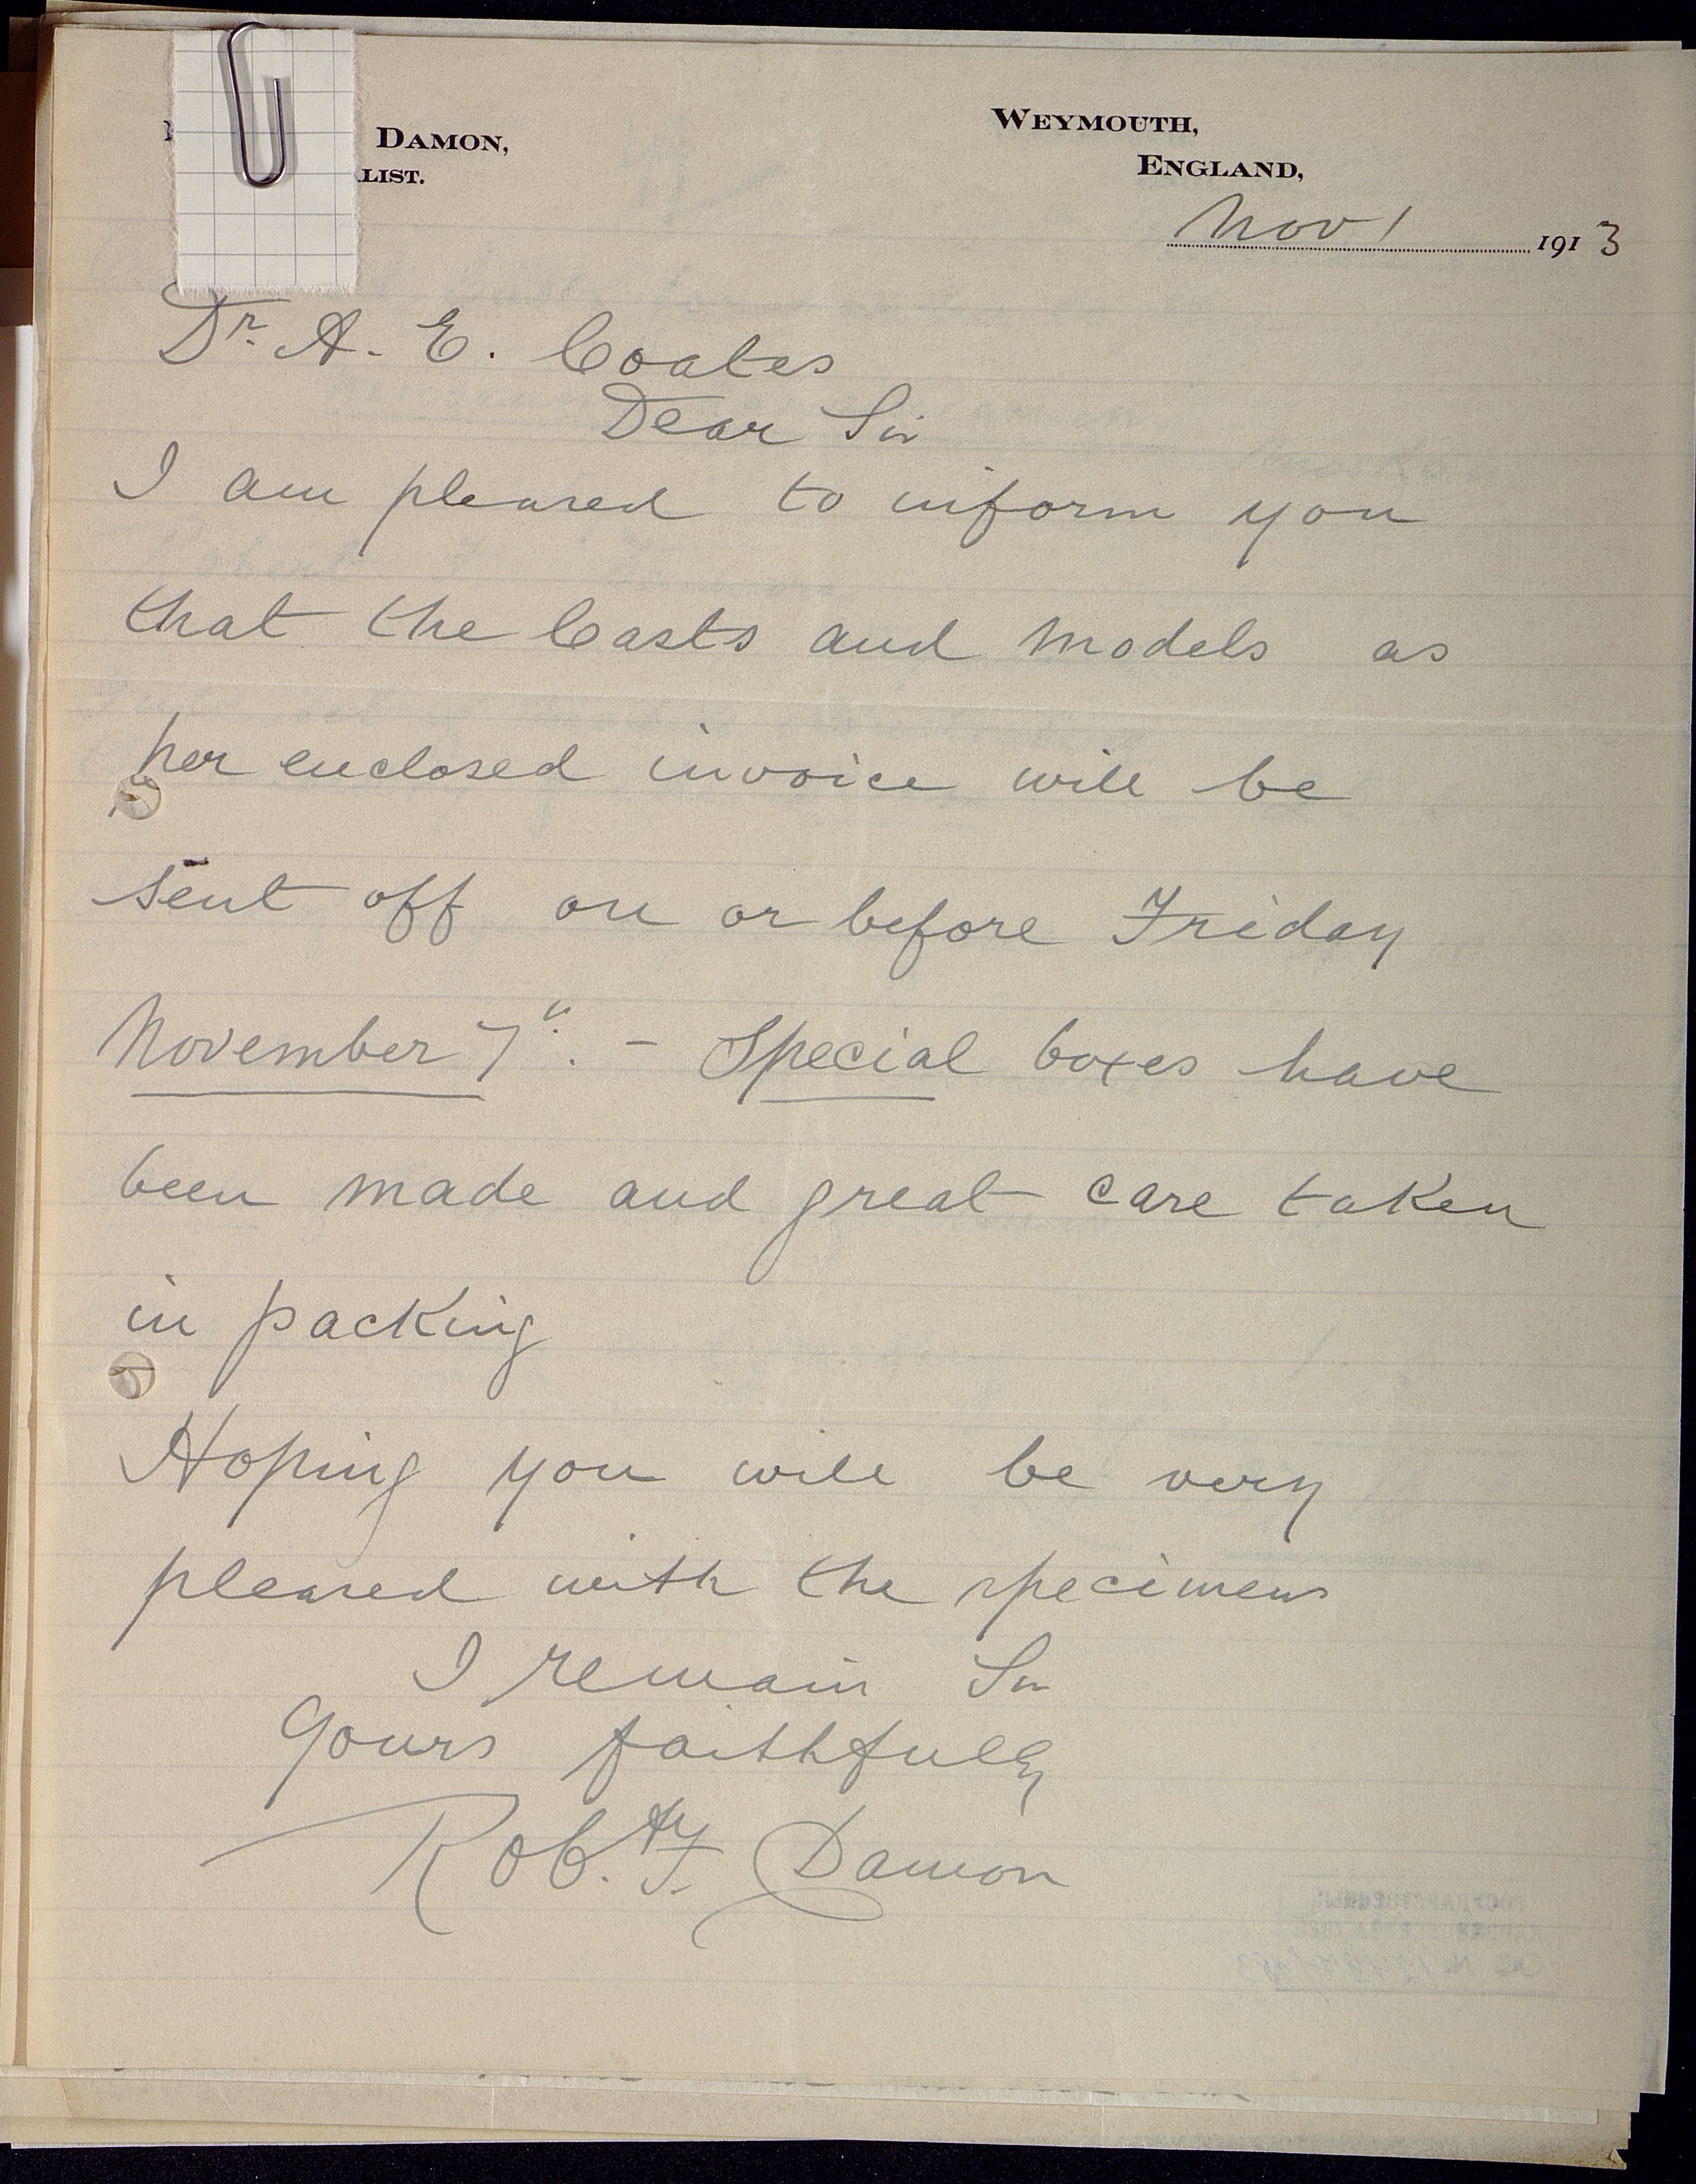 DAMON,
LIST.
WEYMOUTH,
ENGLAND,
Nov 1 1913
Dr. A. E. Coates
Dear Sir
I am pleased to inform you
that the Casts and Models as
per enclosed invoice will be
sent off on or before Friday
November 7". - Special boxes have
been made and great care taken
in packing
Hoping you will be very
pleased with the specimens
I remain Sir
Yours faithfully
Robt. F. Damon